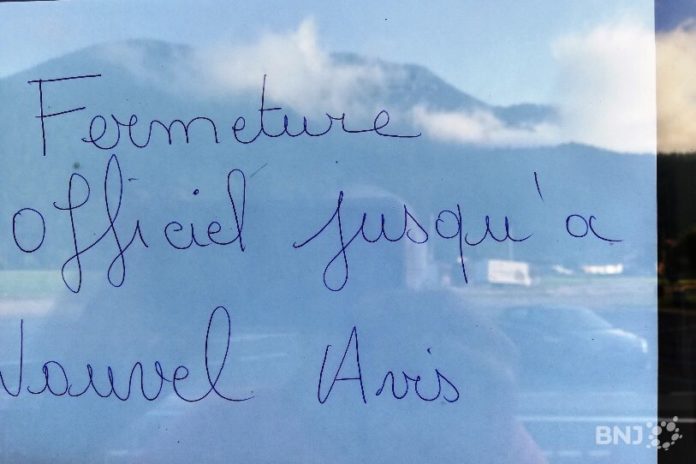 Fermeture
officiel jusqu'a
Nouvel Avis
BNJ